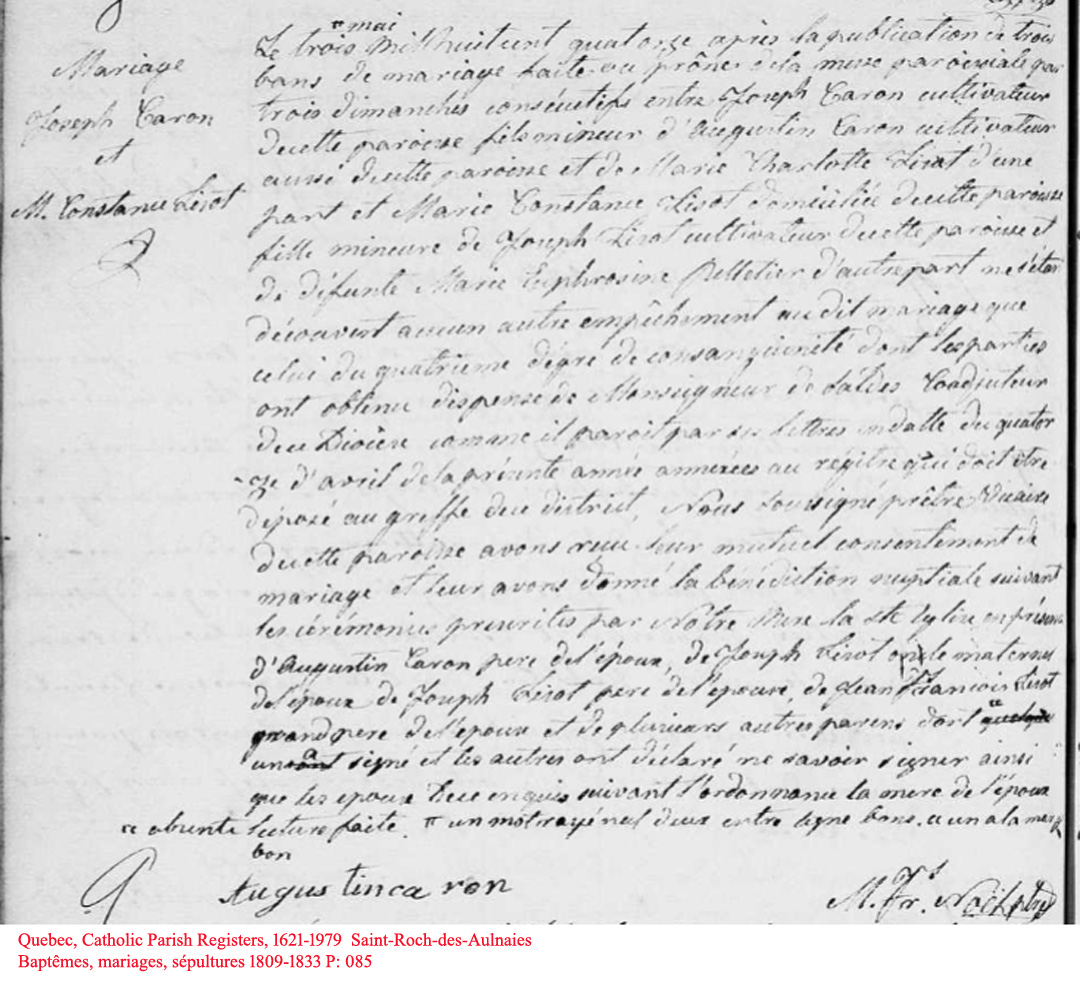 Mariage
Joseph Caron
et
M. Constance Lizot
" mai
Le trois mil huit cent quatorze après la publication de trois
bans de mariage faite au prône de la messe paroissiale par
trois dimanches consécutifs entre Joseph Caron cultivateur
de cette paroisse fils mineur d'Augustin Caron cultivateur
aussi de cette paroisse et de Marie Charlotte Lizot d'une
part et Marie Constance Lizot domiciliée de cette paroisse
fille mineure de Joseph Lizot cultivateur de cette paroisse et
de défunte Marie Euphrosine Pelletier d'autre part ne s'étant
découvert aucun autre empêchement au dit mariage que
celui du quatrième dégré de consanguinité dont les parties
ont obtenu dispense de Monseigneur de Saldes Coadjuteur
de ce Diocèse comme il paroit par ses lettres en datte du quator
-ze d'avril de la présente année annexées au régitre qui doit être
déposé au greffe de ce district, Nous soussigné prêtre Vicaire
de cette paroisse avons reçu leur mutuel consentement de
mariage et leur avons donné la bénédiction nuptiale suivant
les cérémonies prescrites par Notre Mere la Ste Eglise en présence
d'Augustin Caron pere de l'époux, de Joseph Lizot oncle maternel
de l'époux de Joseph Lizot pere de l'épouse, de Jean François Lizot
grandpere de l'époux et de plusieurs autres parens dont quelques
un a signé et les autres ont déclaré ne savoir signer ainsi
que les époux de ce enquis suivant l'ordonnance la mere de l'époux
" absente lecture faite. " un mot rayé nul deux entre ligne bons. " un a la marge
bon
Augustin caron
M. Frs. Noël ptre
Quebec, Catholic Parish Registers, 1621-1979 Saint-Roch-des-Aulnaies
Baptêmes, mariages, sépultures 1809-1833 P: 085